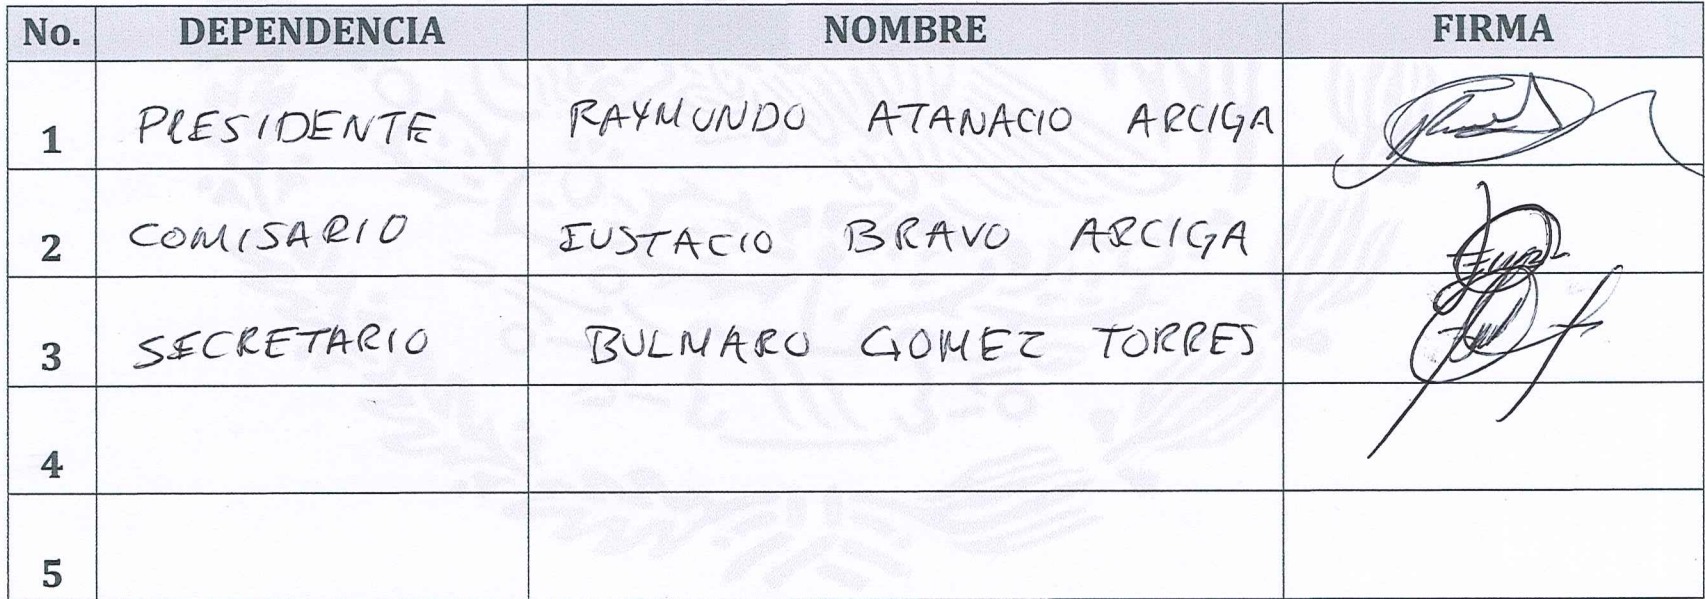 No. DEPENDENCIA NOMBRE FIRMA
1 PRESIDENTE RAYMUNDO ATANACIO ARCIGA
2 COMISARIO EUSTACIO BRAVO ARCIGA
3 SECRETARIO BULMARO GOMEZ TORRES
4
5